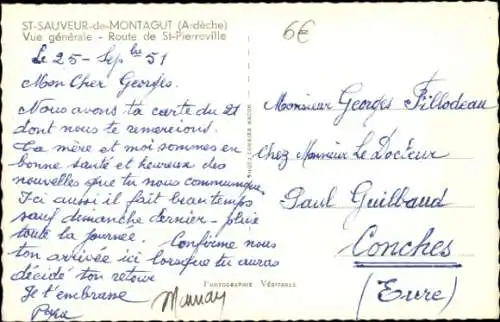 ST-SAUVEUR-de-MONTAGUT (Ardèche)
Vue générale - Route de St-Pierreville
6€
Le 25 - Sepbre 51
Mon Cher Georges.
Nous avons ta carte du 21
dont nous te remercions.
Ta mère et moi sommes en
bonne santé et heureux des
nouvelles que tu nous communique
Ici aussi il fait beau temps
sauf dimanche dernier - pluie
toute la journée. Confirme nous
ton arrivée ici lorsque tu auras
décidé ton retour
Je t'embrasse
Papa
Monsieur Georges Fillodeau
Chez Monsieur Le Docteur
Paul Guilbaud
Conches
(Eure)
PHOTOGRAPHIE VÉRITABLE